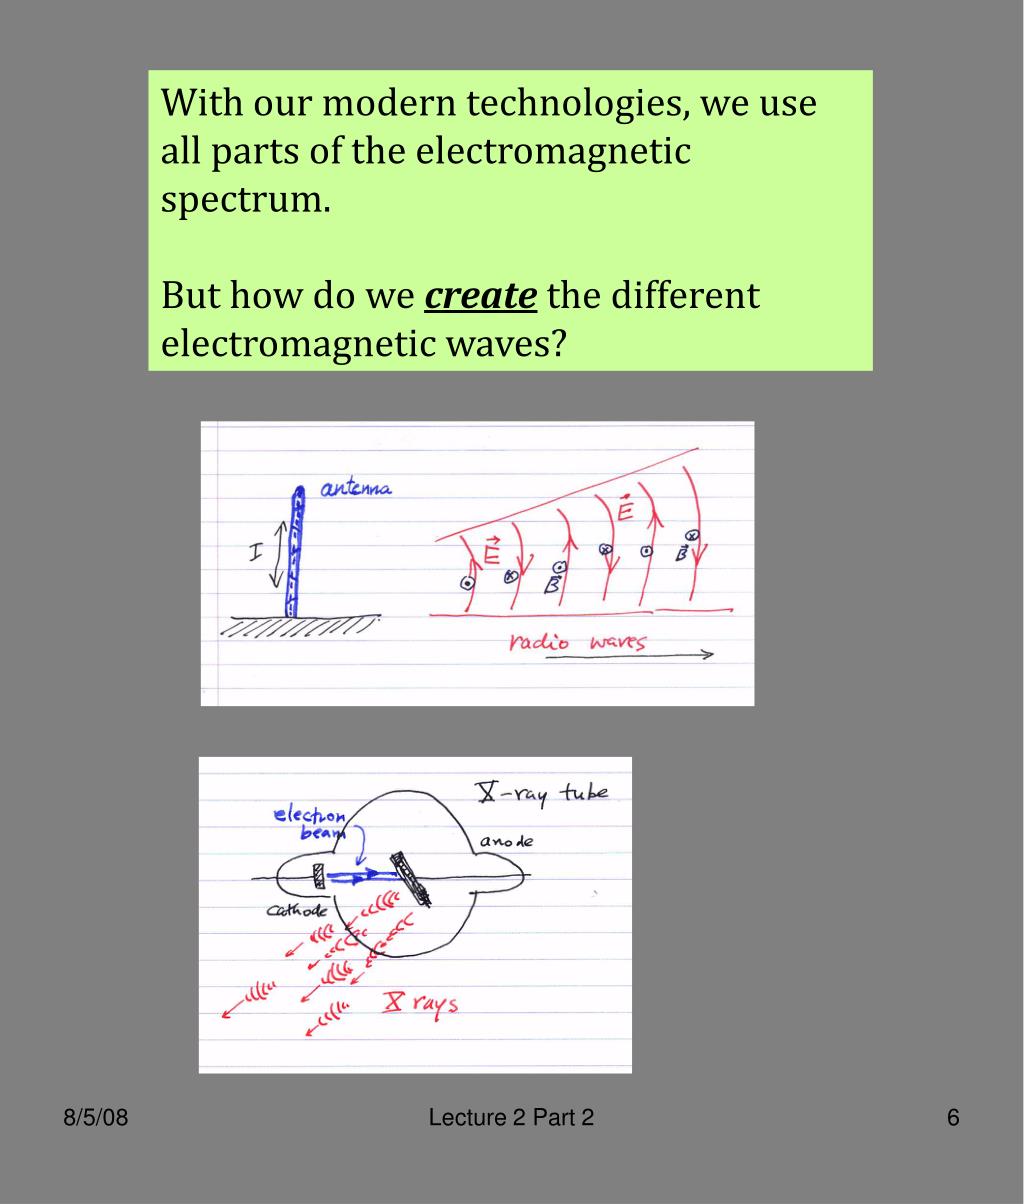 With our modern technologies, we use
all parts of the electromagnetic
spectrum.
But how do we create the different
electromagnetic waves?
antenna
I
E
E
B
B
radio waves
X-ray tube
electron
beam
anode
cathode
X rays
8/5/08
Lecture 2 Part 2
6